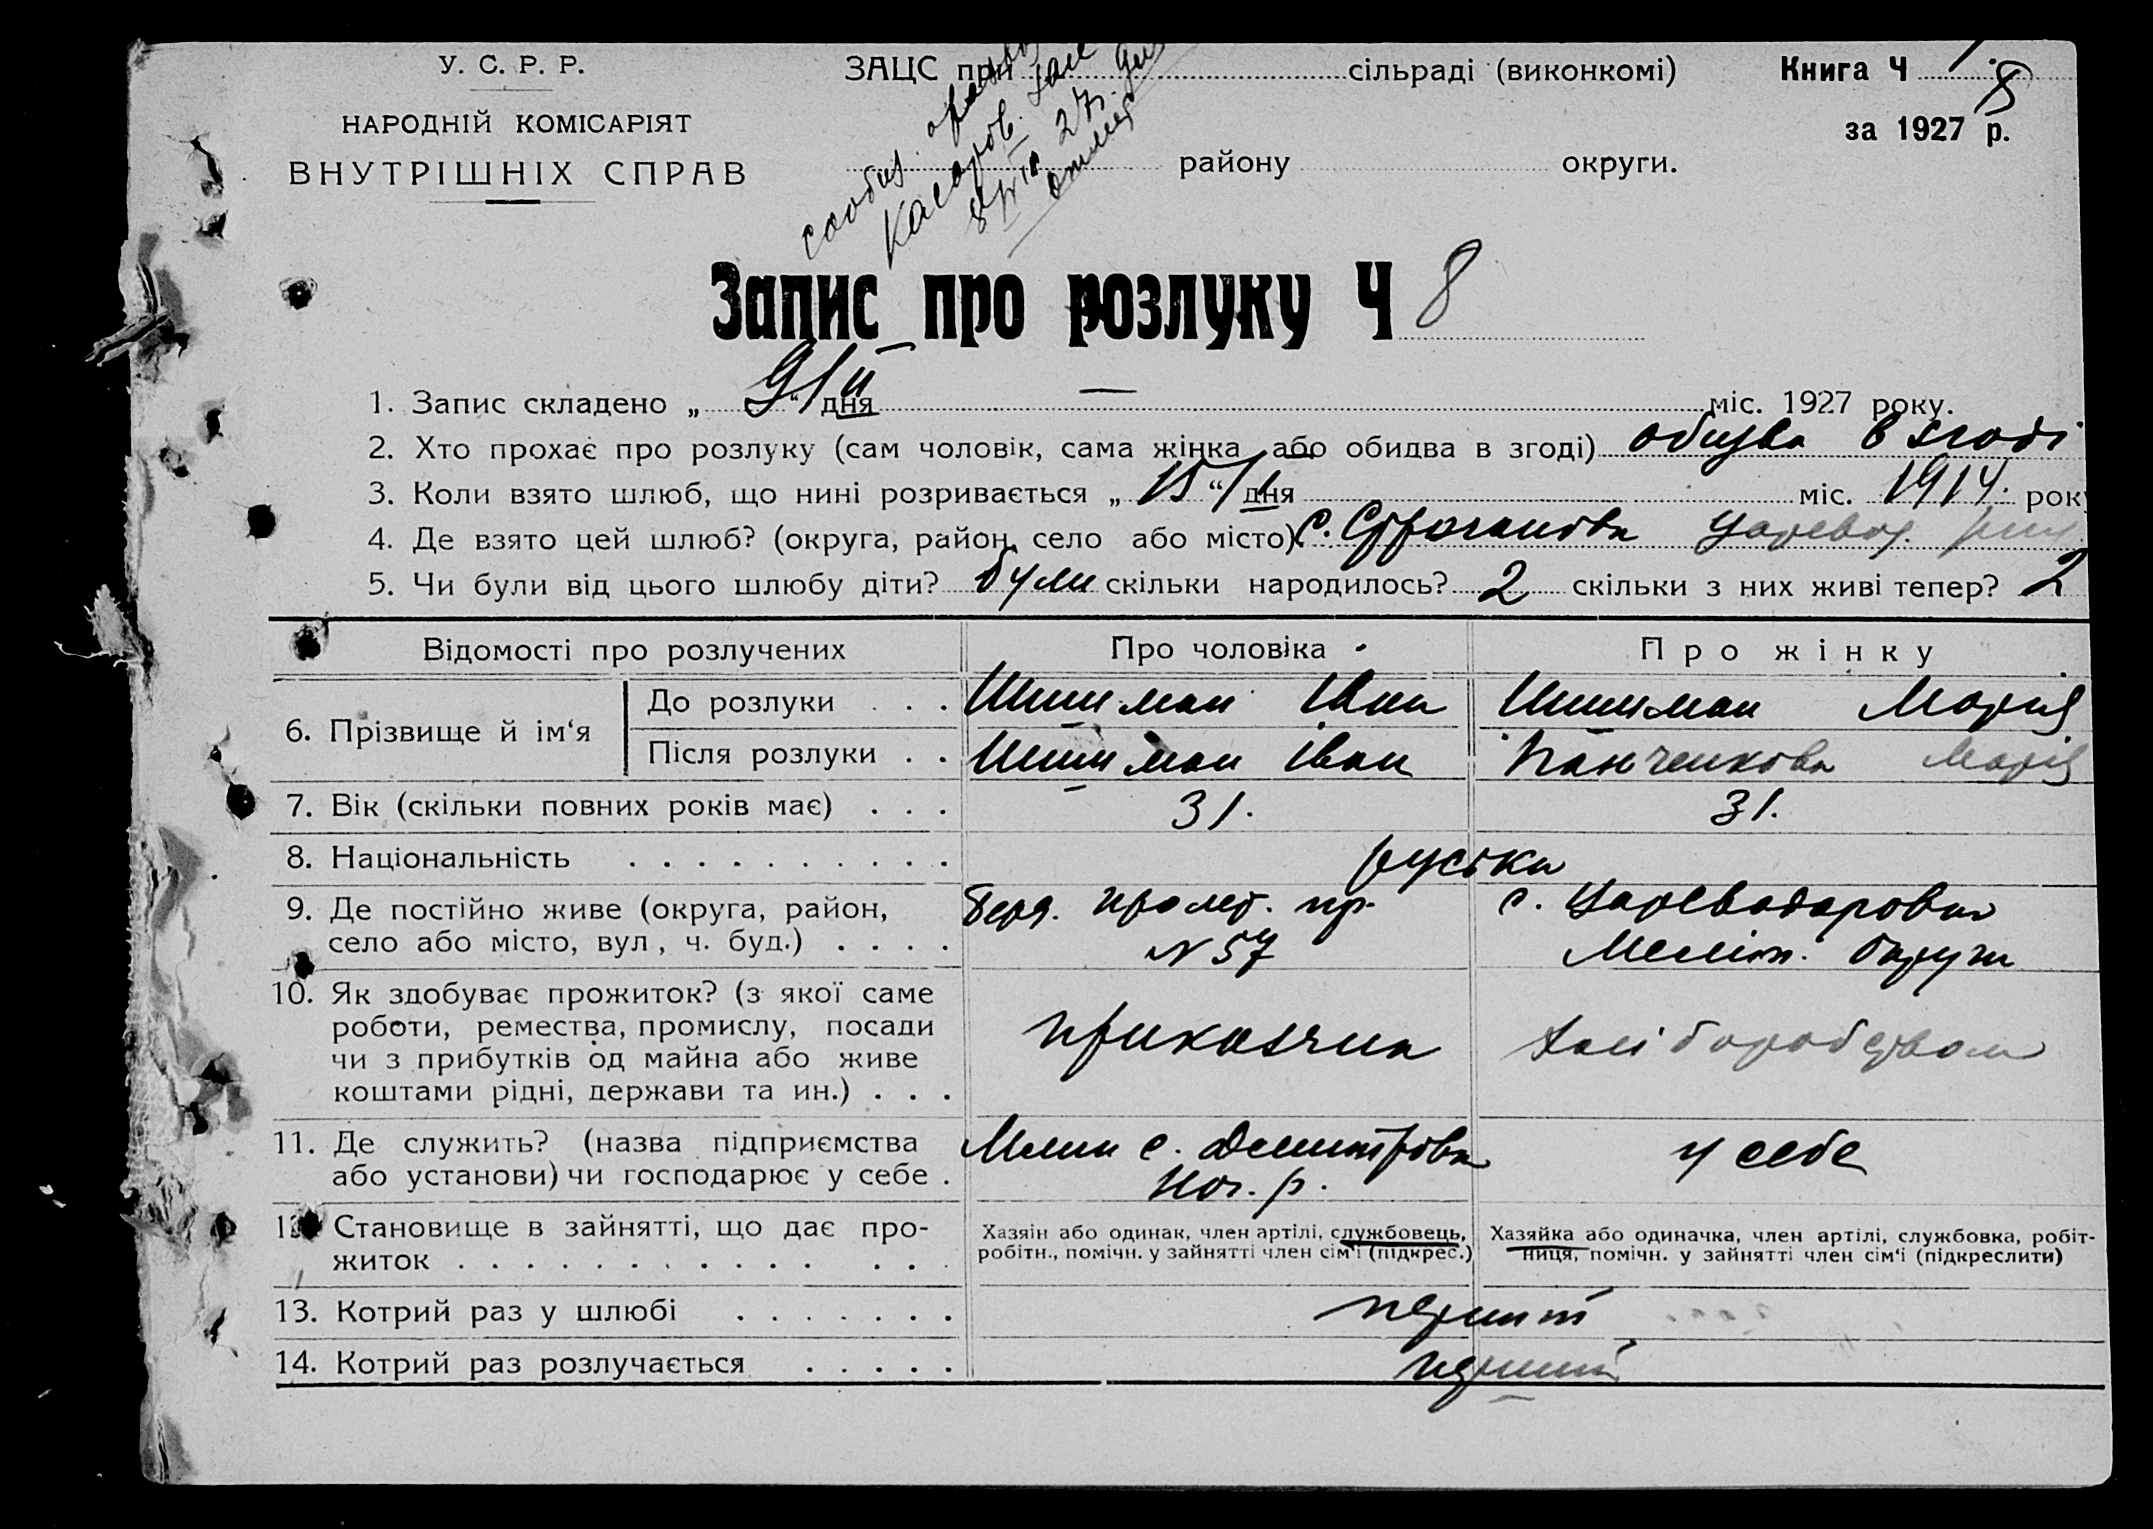 У. С. Р. Р.
НАРОДНІЙ КОМІСАРІЯТ
ВНУТРІШНІХ СПРАВ
ЗАЦС при сільраді (виконкомі)
району округи.
Книга Ч 1
8
за 1927 р.
Запис про розлуку Ч 8
1. Запис складено „ 9/II “ дня — міс. 1927 року.
2. Хто прохає про розлуку (сам чоловік, сама жінка або обидва в згоді) обидва в згоді
3. Коли взято шлюб, що нині розривається „ 15 “ / дня міс. 1914. рок
4. Де взято цей шлюб? (округа, район, село або місто) с.
5. Чи були від цього шлюбу діти? були скільки народилось? 2 скільки з них живі тепер? 2
Відомості про розлучених Про чоловіка Про жінку
6. Прізвище й ім‘я
До розлуки . . . Шишман Іван Шишман Марія
Після розлуки . . Шишман Іван Панченкова Марія
7. Вік (скільки повних років має) . . . 31. 31.
8. Національність . . . . . . . . . . руські
9. Де постійно живе (округа, район, Берд. пролет. пр. с. Цареводаровка
село або місто, вул, ч. буд.) . . . . N 57 Меліт. округи
10. Як здобуває прожиток? (з якої саме
роботи, ремества, промислу, посади
чи з прибутків од майна або живе приказчик хліборобством
коштами рідні, держави та ин.) . . .
11. Де служить? (назва підприємства Млин с. Дмитрівка у себе
або установи) чи господарює у себе . Ног. р.
12. Становище в зайнятті, що дає про- Хазяїн або одинак, член артілі, службовець, Хазяйка або одиначка, член артілі, службовка, робіт-
житок . . . . . . . . . . . . . робітн., помічн. у зайнятті член сім‘ї (підкрес.) ниця, помічн. у зайнятті член сім‘ї (підкреслити)
13. Котрий раз у шлюбі . . . . . . . перший
14. Котрий раз розлучається . . . . . перший